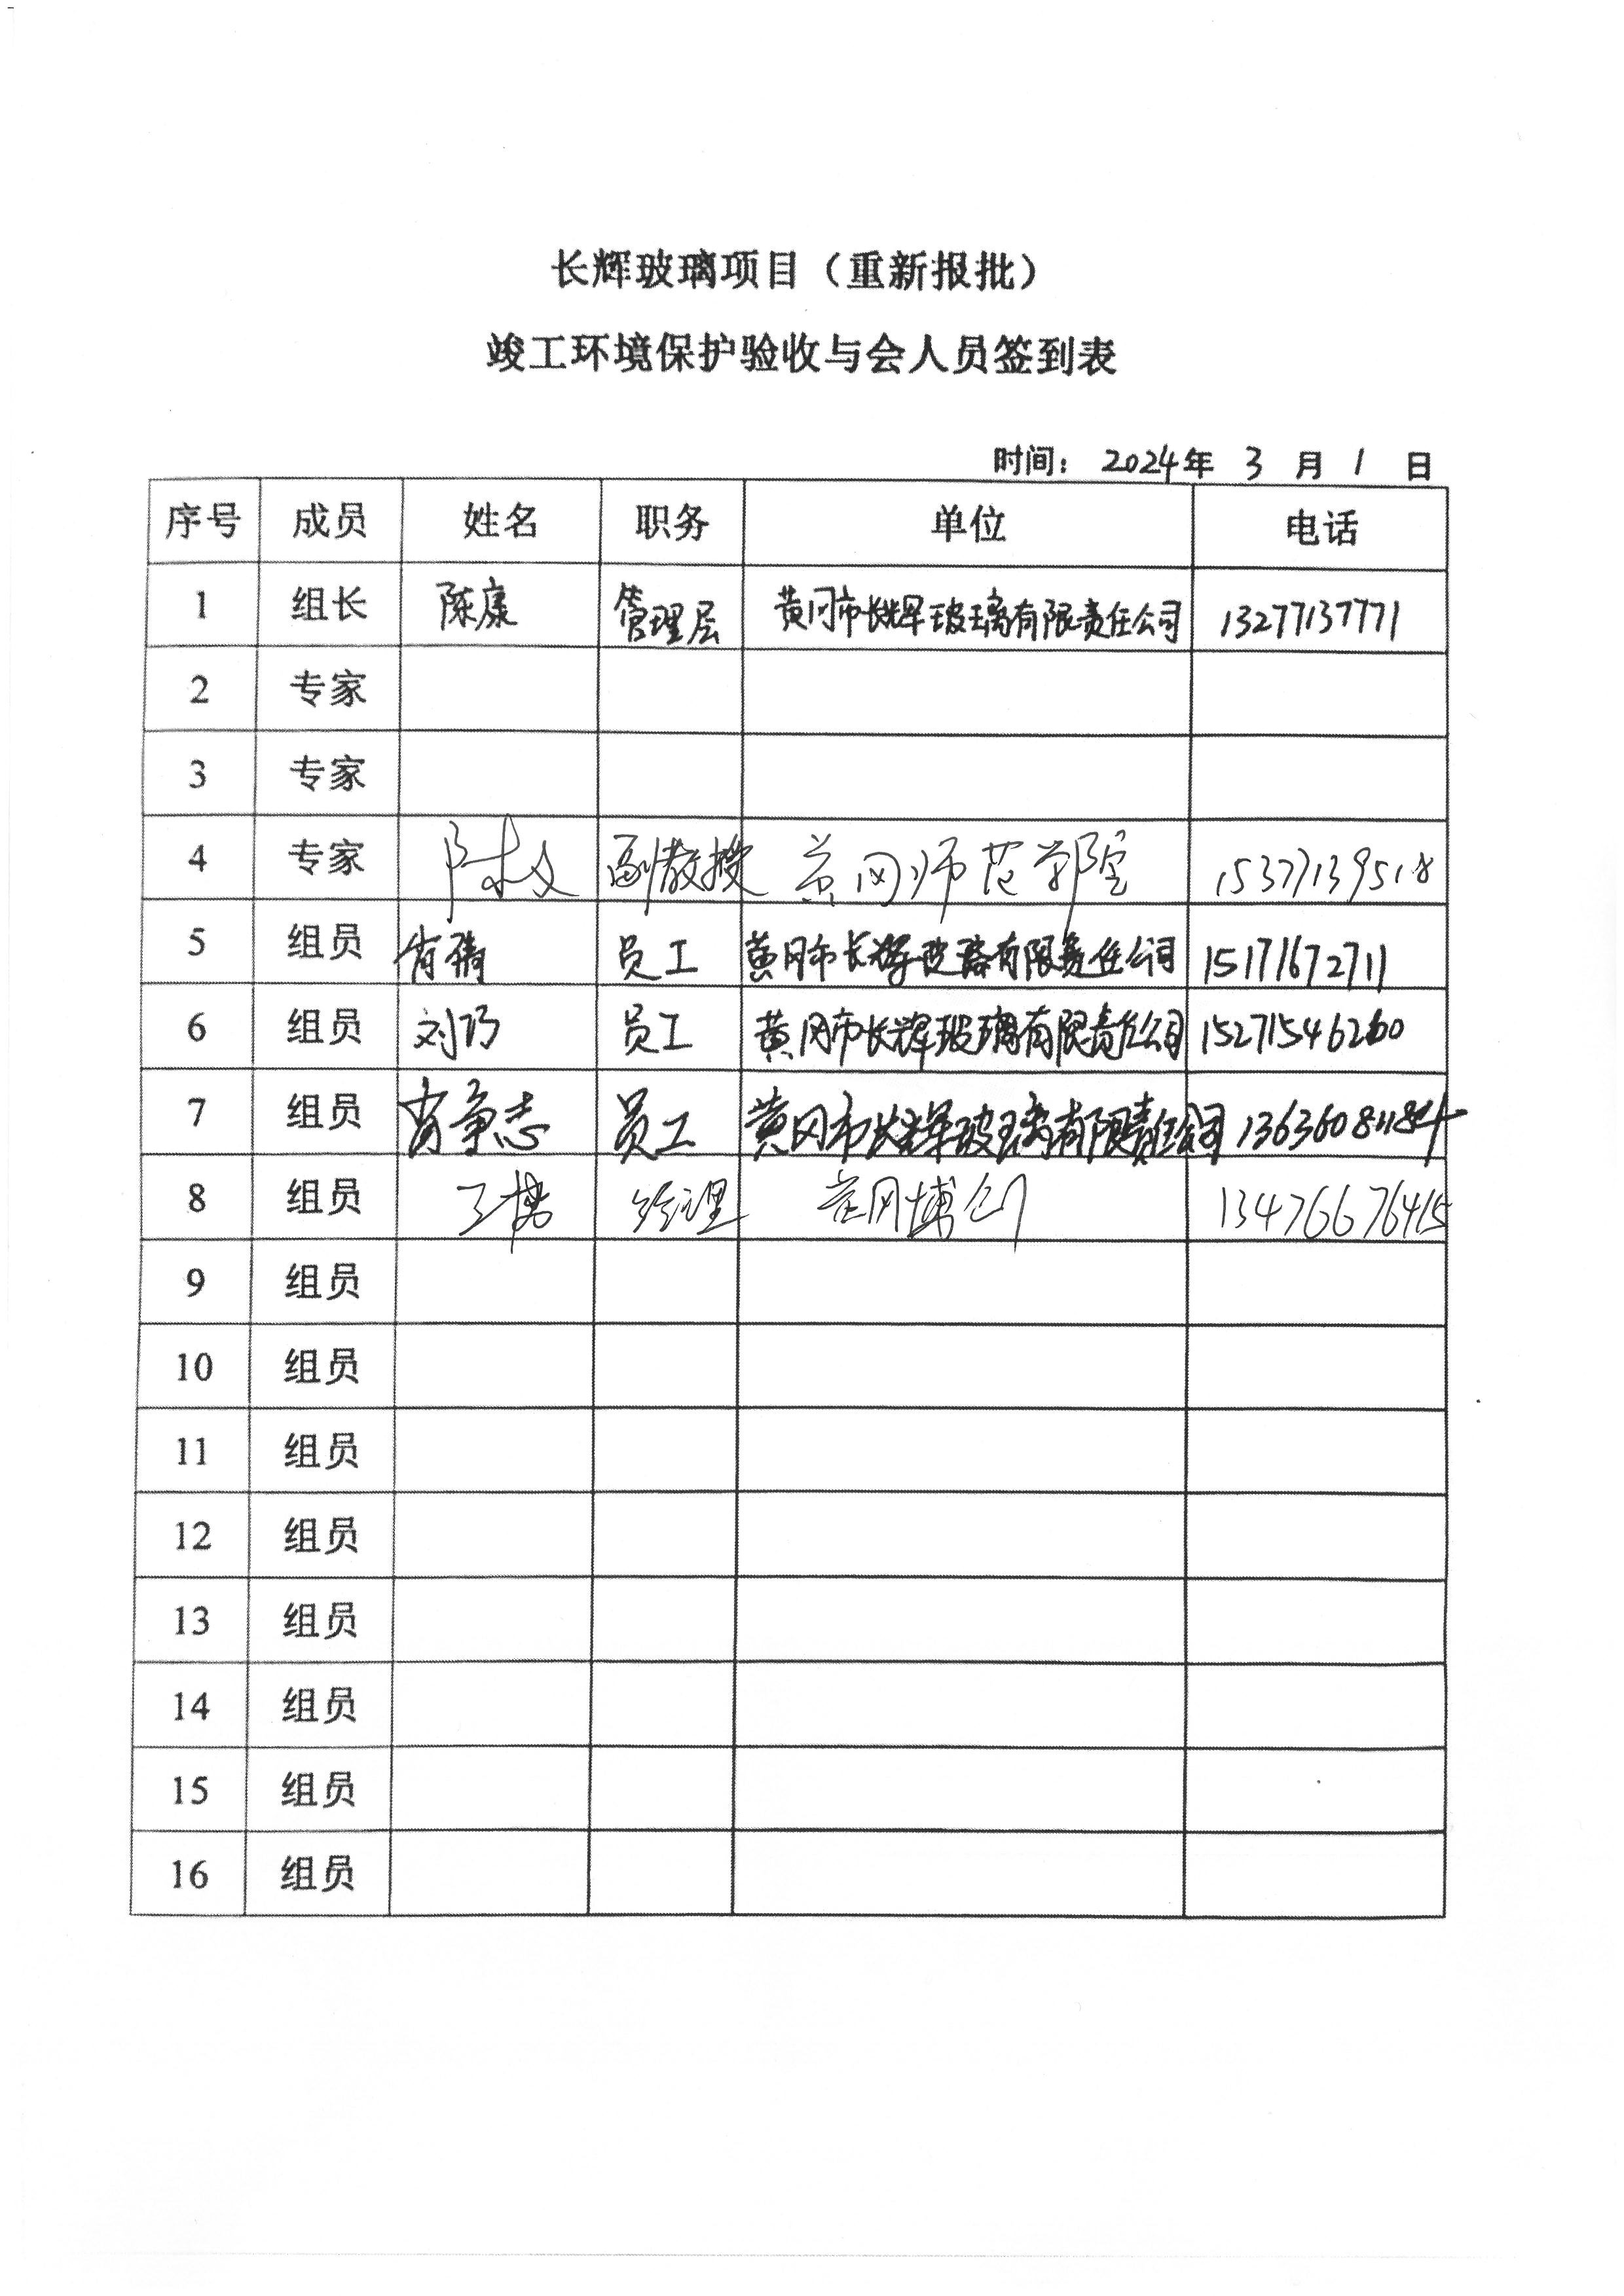 长辉玻璃项目（重新报批）
竣工环境保护验收与会人员签到表
时间： 2024年 3 月 1 日
序号 成员 姓名 职务 单位 电话
1 组长 陈康 管理层 黄冈市长辉玻璃有限责任公司 13277137771
2 专家
3 专家
4 专家 副教授 黄冈师范学院
5 组员 肖倩 员工 黄冈市长辉玻璃有限责任公司 15171672711
6 组员 刘巧 员工 黄冈市长辉玻璃有限责任公司 15271546260
7 组员 肖争志 员工 黄冈市长辉玻璃有限责任公司
8 组员 经理 黄冈博创 13476676415
9 组员
10 组员
11 组员
12 组员
13 组员
14 组员
15 组员
16 组员